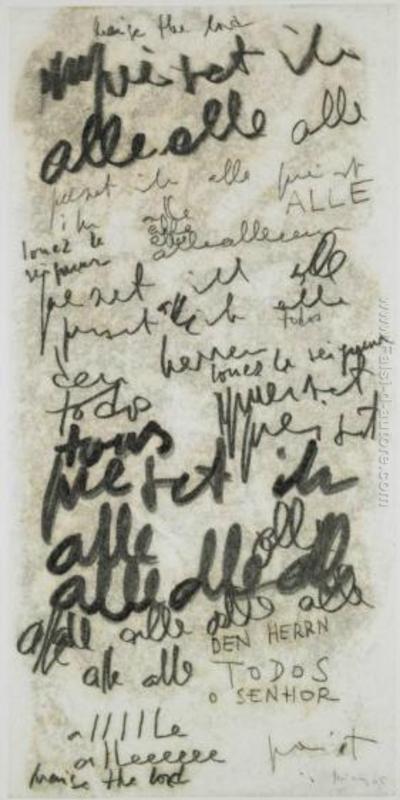 praise the lord
preiset ihn
alle alle alle
preiset ihn alle preiset
ihn alle ALLE
alle
allealleeeee
louez le
seigneur
preiset ihn alle
alle
preiset ihn alle
todos
den herren
louez le seigneur
todos preiset
preiset
tous
preiset ihn
alle alle
alle alle alle
alle alle alle alle
DEN HERRN
alle alle
TODOS
O SENHOR
allllle
alleeeeee
preiset
praise the lord
www.Falsi-d-autore.com